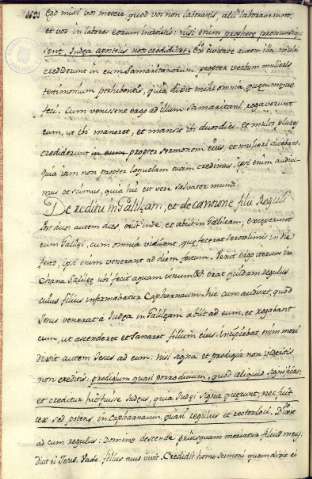 Ego misi vos metere quod vos non laborastis, alii laboraverunt,
et vos in labores eorum introistis: nisi enim prophetæ
sent, Judæa apostolis non credidisset. Ex civitate autem illa multi
crediderunt in eum samaritanorum, propter verbum mulieris
testimonium perhibentis, quia dixit mihi omnia, quæcumque
feci. Cum venissent ergo ad illum samaritani rogaverunt
eum, ut ibi maneret, et mansit ibi duos dies. et multo plures
crediderunt in eum propter sermonem eius, et mulieri dicebant,
Quia iam non propter loquelam tuam credimus. ipsi enim audivi-
mus et scimus, quia hic est vere salvator mundi.
De reditu in Galilæam, et de curatione filii Reguli
Post duos autem dies, exiit inde, et abiit in Galilæam, exceperunt
eum Galilæi, cum omnia vidissent, quæ fecerat Jerosolimis in die
festo, ipsi enim venerant ad diem festum. Venit ergo iterum in
Chana Galileæ ubi fecit aquam vinum et erat quidam regulus
cuius filius infirmabatur Capharnaum. hic cum audisset, quod
Jesus venerat a Judæa in Galilæam abiit ad eum, et rogabant
eum, ut ascenderet et sanaret filium eius. Incipiebat enim mori
dixit autem Jesus ad eum. nisi signa et prodigia non videritis
non creditis, prodigium quasi porrodicium, quod aliquid significet
et credetur hic fuisse Judæus, quia Judæi signa quærunt, nec fuit
rex sed potens in Capharnaum, quasi regulus et Dixit
ad eum regulus: domine descende priusquam moriatur filius meus,
dixit ei Jesus. Vade filius tuus vivit. Credidit homo sermoni quem dixit ei